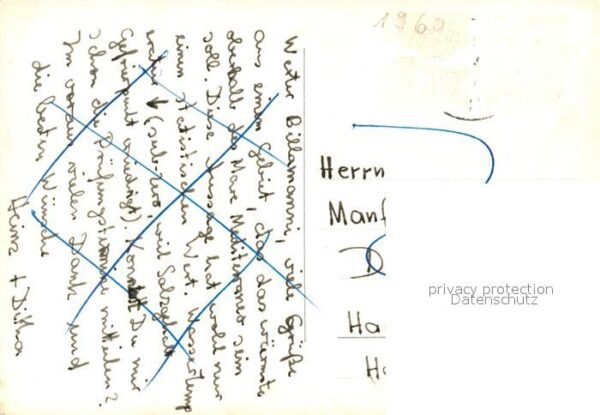 Werter Billamanni, viele Grüße
aus einem Gebiet, das das wärmste
oberhalb des Mare Mediterraneo sein
soll. Diese Aussage hat wohl nur
einen statistischen Wert. Wassertemp
(sub-zero, weil Salzgehalt
Gefrierpunkt erniedrigt). Könntest Du mir
schon die Prüfungstermine mitteilen?
Im voraus vielen Dank und
die besten Wünsche
Heinz +
1960
Herrn
Manf
D
Ha
H
privacy protection
Datenschutz